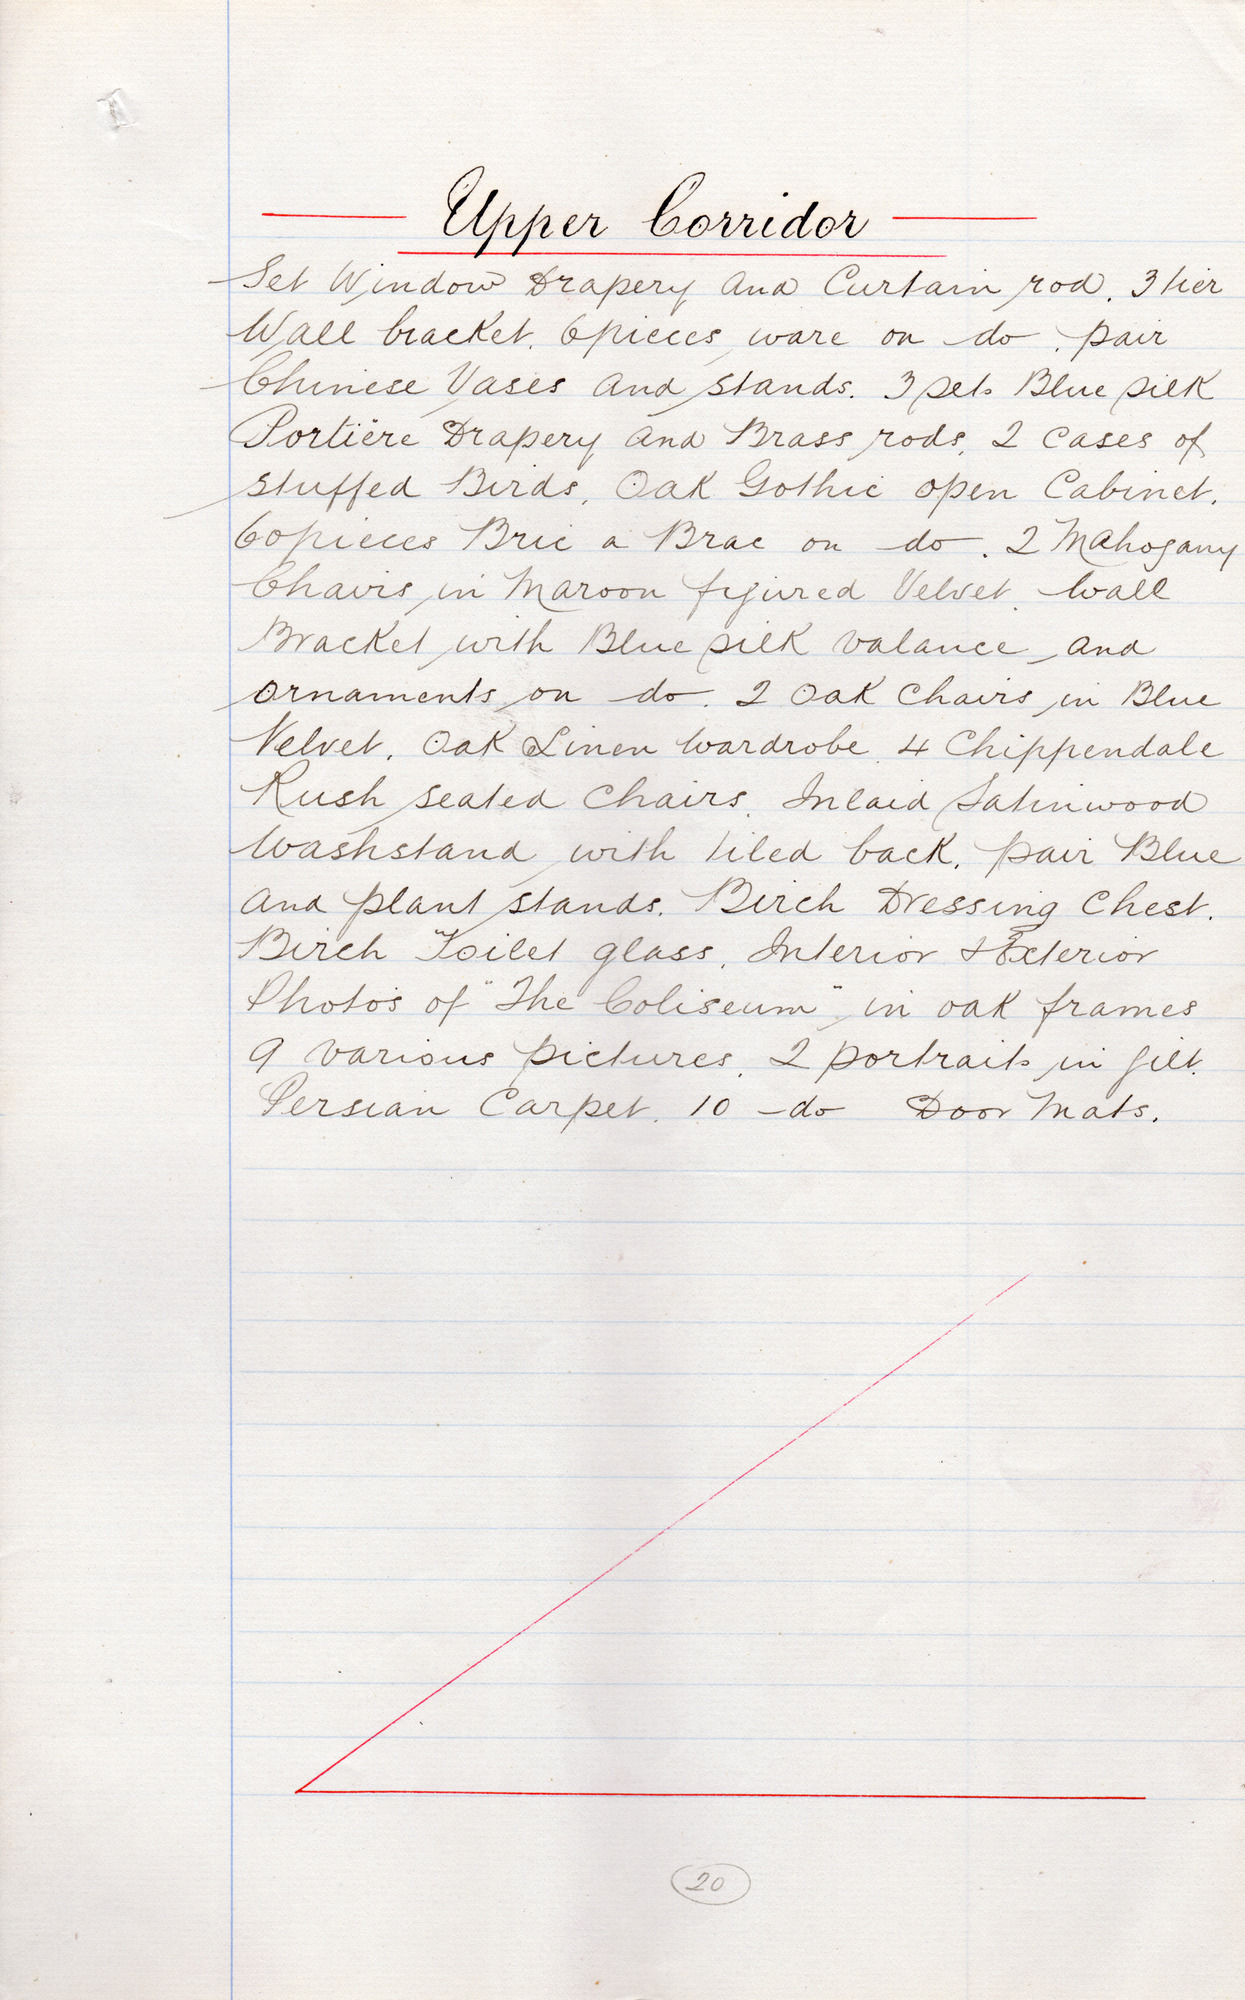 Upper Corridor
Set Window Drapery and Curtain rod. 3 tier
Wall bracket. 6 pieces ware on do. pair
Chinese Vases and stands. 3 sets Blue silk
Portière Drapery and Brass rods. 2 Cases of
stuffed Birds. Oak Gothic open Cabinet.
60 pieces Bric a Brac on do. 2 Mahogany
Chairs in Maroon figured Velvet. Wall
Bracket with Blue silk valance and
ornaments on do. 2 Oak Chairs in Blue
Velvet. Oak Linen Wardrobe. 4 Chippendale
Rush seated Chairs. Inlaid Satinwood
Washstand with tiled back. pair Blue
and plant stands. Birch Dressing Chest.
Birch Toilet glass. Interior & Exterior
Photo's of "The Coliseum" in oak frames
9 various pictures. 2 portraits in gilt.
Persian Carpet. 10 do Door Mats.
20